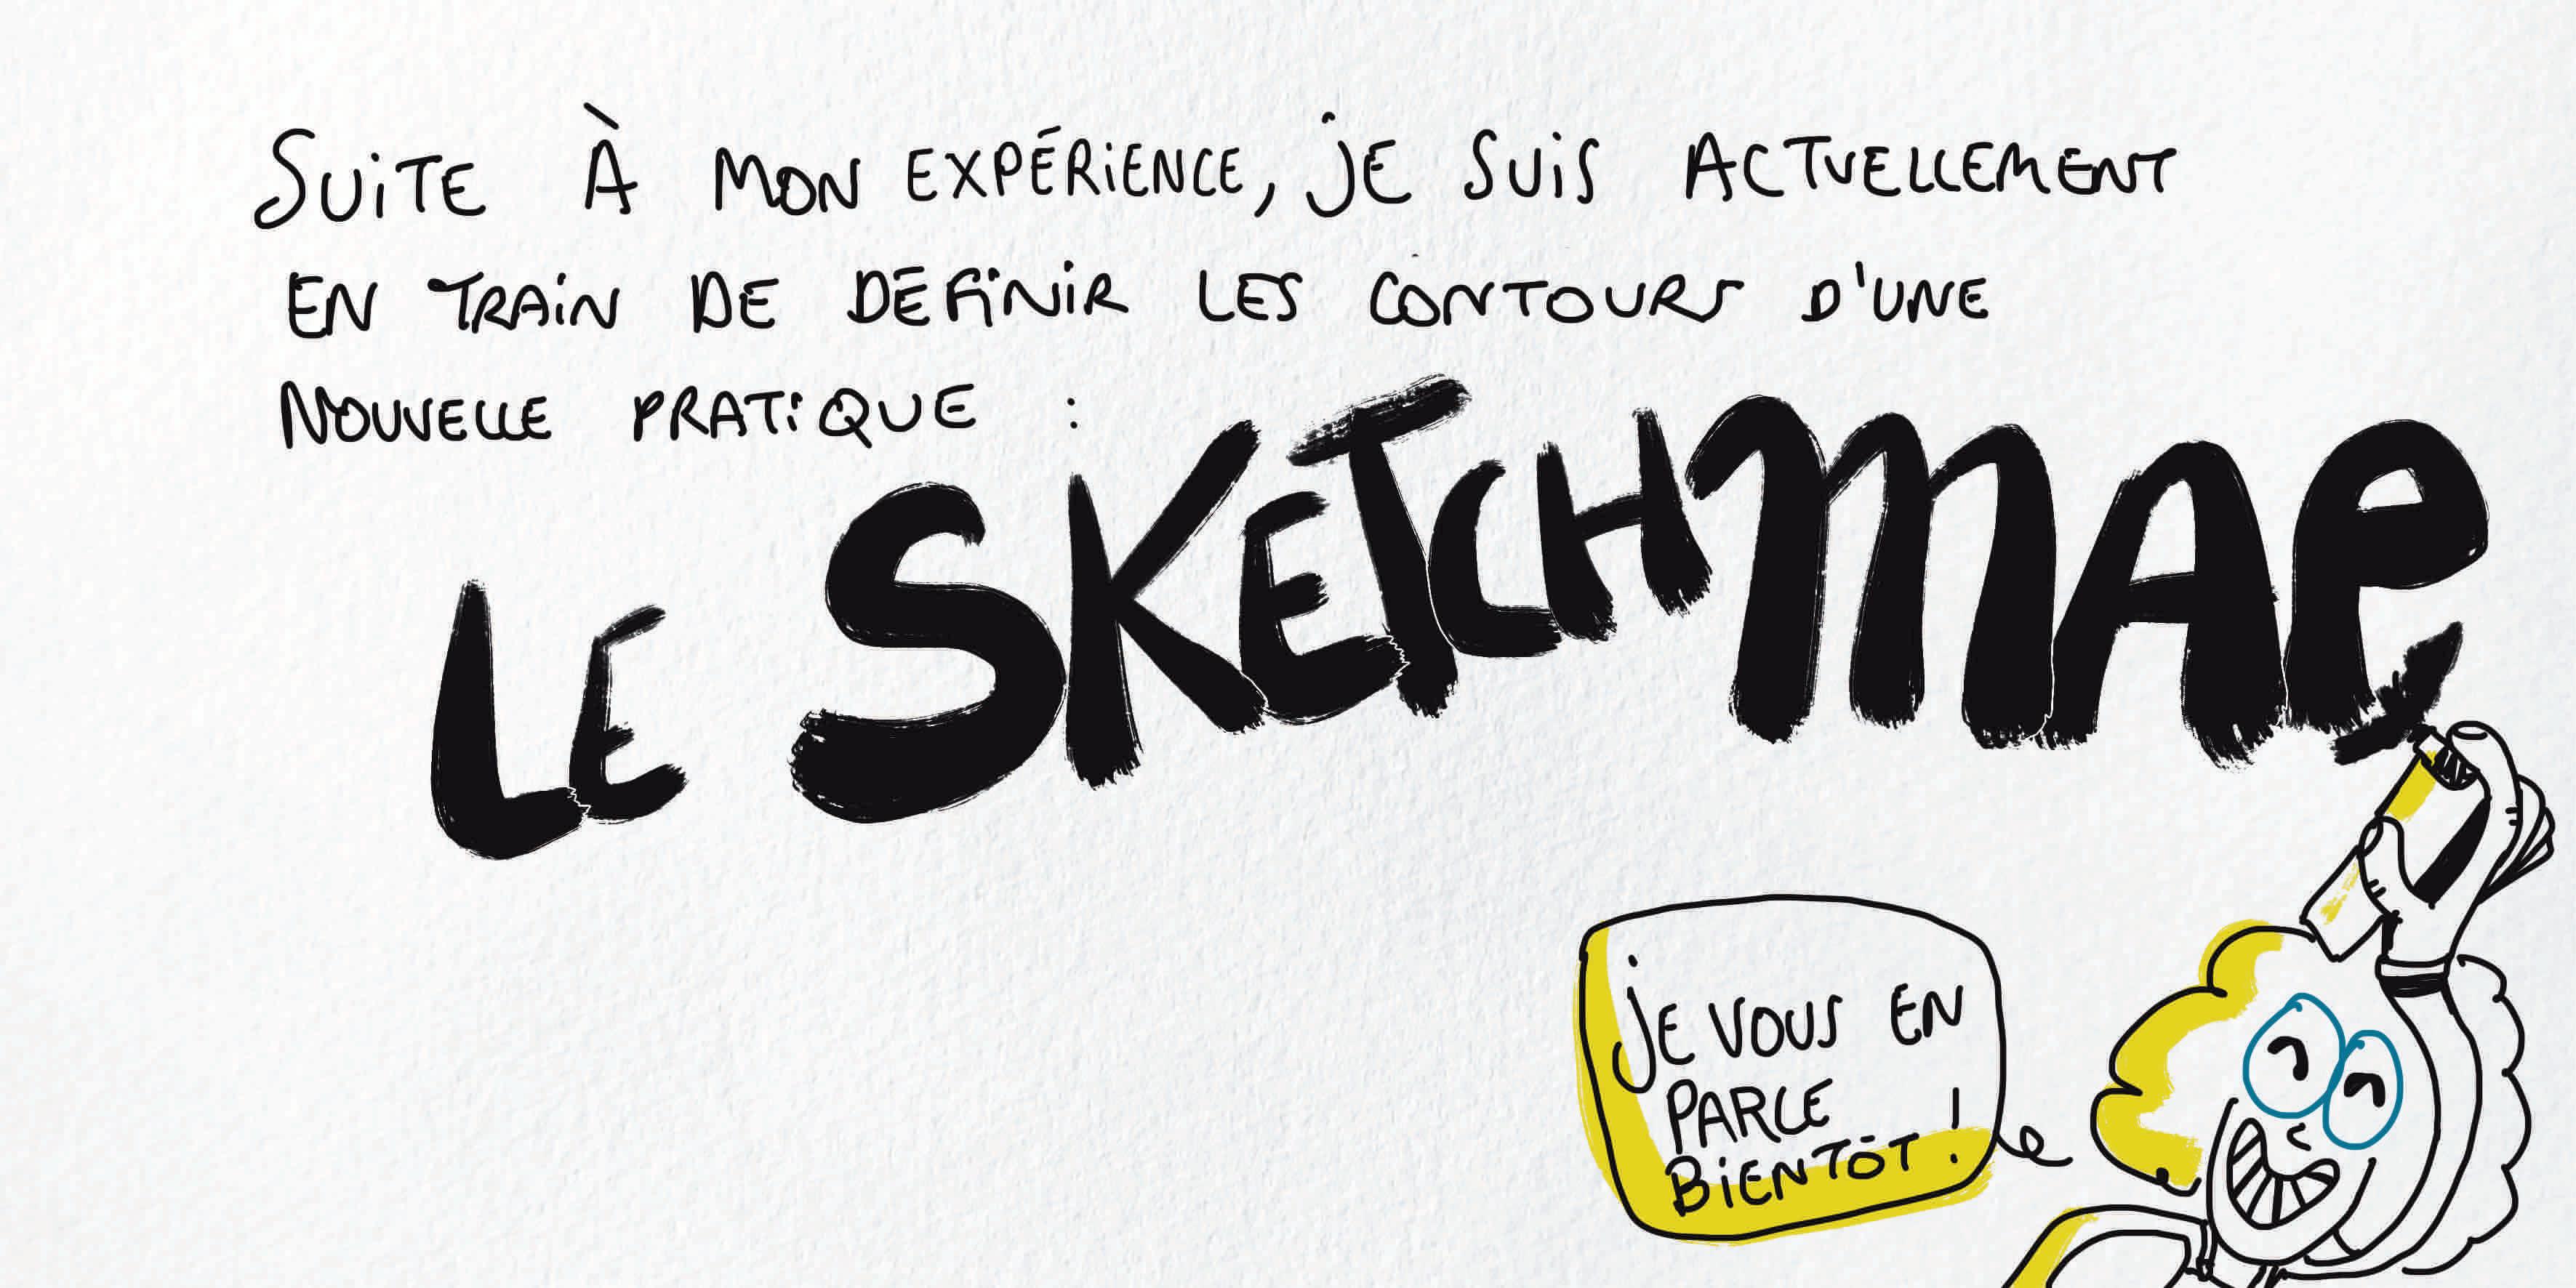 SUITE À MON EXPÉRIENCE, JE SUIS ACTUELLEMENT
EN TRAIN DE DÉFINIR LES CONTOURS D'UNE
NOUVELLE PRATIQUE :
LE SKETCHMAP
JE VOUS EN
PARLE
BIENTÔT !